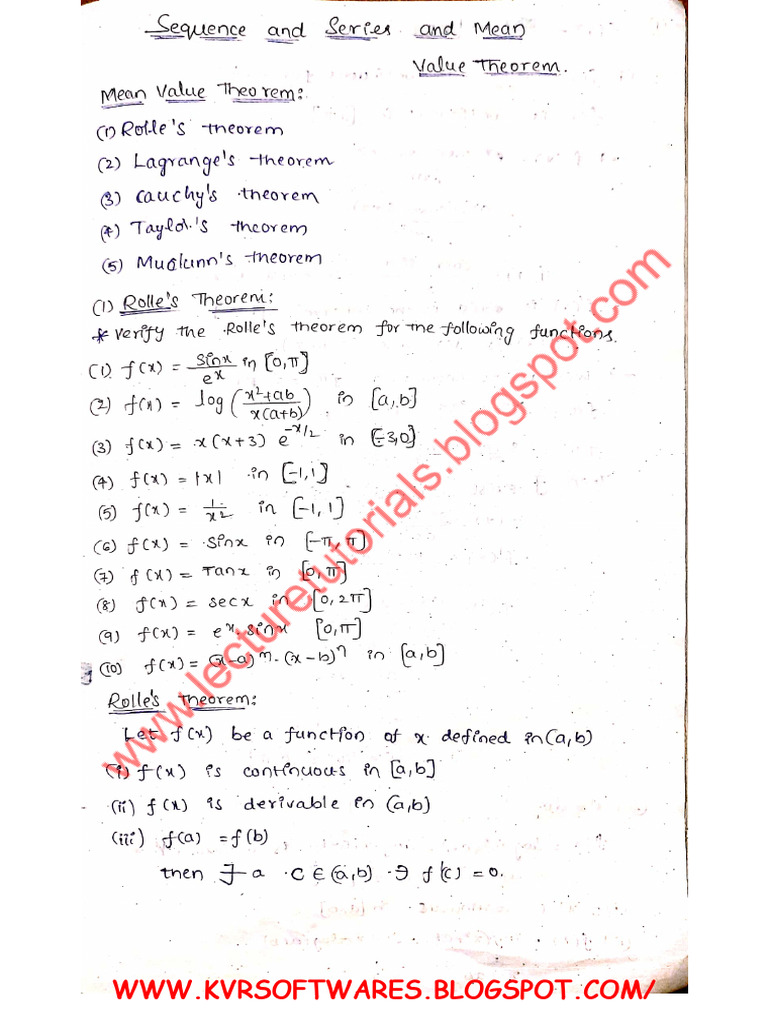 Sequence and Series and Mean
Value Theorem.
Mean Value Theorem:
(1) Rolle's theorem
(2) Lagrange's theorem
(3) Cauchy's theorem
(4) Taylor's theorem
(5) Muclunn's theorem
(1) Rolle's Theorem:
* Verify the Rolle's theorem for the following functions.
(1) f(x) = sinx/e^x in [0,π]
(2) f(x) = log(x²+ab / x(a+b)) in [a,b]
(3) f(x) = x(x+3) e^-x/2 in [-3,0]
(4) f(x) = |x| in [-1,1]
(5) f(x) = 1/x² in [-1,1]
(6) f(x) = sinx in [-π,π]
(7) f(x) = Tanx in [0,π]
(8) f(x) = secx in [0,2π]
(9) f(x) = e^x.sinx [0,π]
(10) f(x) = (x-a)^m.(x-b)^n in [a,b]
Rolle's Theorem:
Let f(x) be a function of x defined in (a,b)
(i) f(x) is continuous in [a,b]
(ii) f(x) is derivable in (a,b)
(iii) f(a) = f(b)
then ∃ a c ∈ (a,b) ∋ f'(c) = 0.
www.lecturetutorials.blogspot.com
WWW.KVRSOFTWARES.BLOGSPOT.COM/